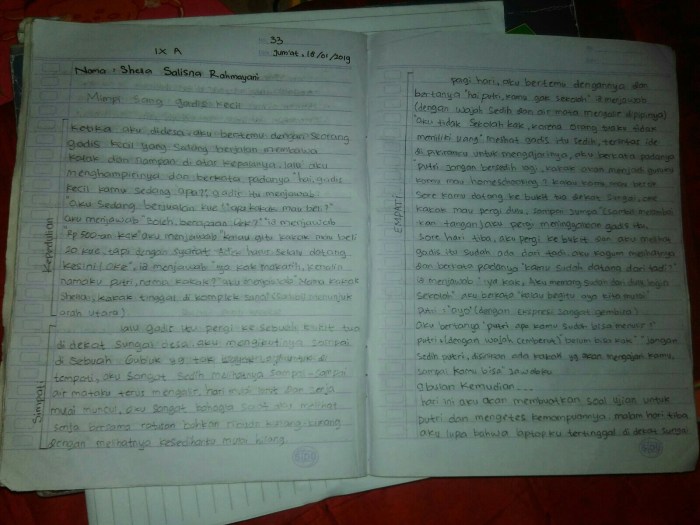 IX A
33
Jum'at, 18/01/2019
Nama : Shesa Salisna Rahmayani
Mimpi Sang gadis kecil
Ketika aku didesa, aku bertemu dengan seorang
gadis kecil yang sedang berjalan membawa
kakak dan siampan di atas kepalanya, lalu aku
menghampirinya dan bertanya padanya "hai gadis
kecil kamu sedang apa?", gadis itu menjawab
"aku sedang berjualan kue kakak mau beli?"
aku menjawab "boleh, berapaan kue?" ia menjawab
"Rp 500-an kak" aku menjawab kakak mau beli
20 kue, tapi dengan syarat kamu harus selalu datang
kesini, oke", ia menjawab "ya kak makasih, kenalin
namaku putri, nama kakak?" aku menjawab "Nama kakak
Shesa, kakak tinggal di komplek sana" (sambil menunjuk
arah utara)
Kepedulian
lalu gadis itu pergi ke sebuah bukit tua
di dekat sungai desa, aku mengikutinya sampai
di sebuah gubuk yg tak
tempati, aku sangat sedih melihatnya sampai-sampai
air mataku terus mengalir, hari mulai sore dan senja
mulai muncul, aku sangat bahagia saat melihat
senja bersama ratusan bahkan ribuan kunang-kunang
dengan melihatnya kesedihanku mulai hilang
Simpati
pagi hari, aku bertemu dengannya dan
bertanya "hai putri, kamu gak sekolah" ia menjawab
(dengan wajah sedih dan air mata mengalir di pipinya)
"aku tidak sekolah kak, karena orang tuaku tidak
memiliki uang" melihat gadis itu sedih, terlintas ide
di pikiranku untuk mengajarinya, aku berkata padanya
"putri jangan bersedih lagi, kakak akan menjadi gurumu
kamu mau homeschooling? kalau kamu mau besok
sore kamu datang ke bukit tua dekat sungai, oke
kakak mau pergi dulu, sampai jumpa" (sambil melambai
kan tangan) aku pergi meninggalkan gadis itu,
Sore hari tiba, aku pergi ke bukit dan aku melihat
gadis itu sudah ada dari tadi, aku kagum melihatnya
dan berkata padanya "kamu sudah datang dari tadi?"
ia menjawab "ya kak, aku memang sudah dari dulu ingin
sekolah" aku berkata "kalau begitu ayo kita mulai"
putri : "ayo" (dengan ekspresi sangat gembira)
aku bertanya "putri apa kamu sudah bisa menulis"
putri : (dengan wajah cemberut) belum bisa kak" "jangan
sedih putri, disinikan ada kakak yg akan mengajari kamu,
sampai kamu bisa" jawabku
6 bulan kemudian...
hari ini aku akan membuatkan soal ujian untuk
putri dan mengetes kemampuannya, malam hari tiba
aku lupa bahwa laptopku tertinggal di dekat sungai
EMPATI